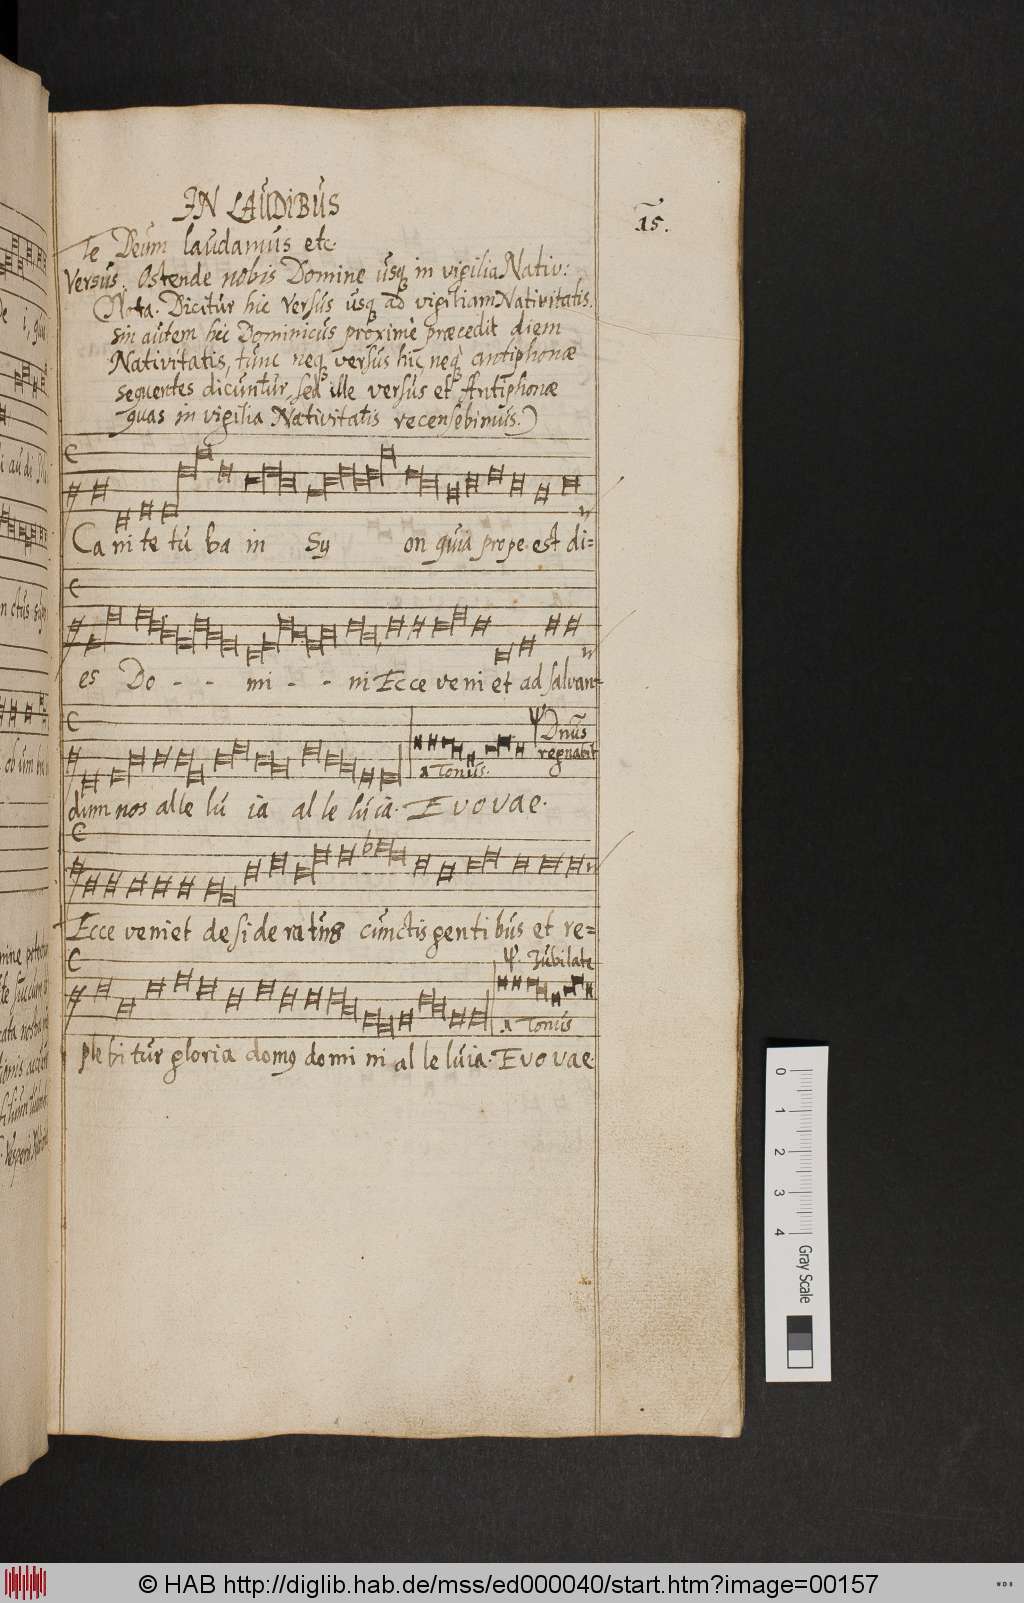 IN LAUDIBUS
15.
Te Deum laudamus etc.
Versus. Ostende nobis Domine usq in vigilia Nativ:
(Nota. Dicitur hic versus usq ad vigiliam Nativitatis.
sin autem hic Dominicus proximè præcedit diem
Nativitatis, tunc neq versus hic, neq antiphonæ
sequentes dicuntur, sed ille versus et Antiphonæ
quas in vigilia Nativitatis recensebimus.)
Ca ni te tu ba in Sy on quia prope est di=
es Do - - mi - - ni Ecce veni et ad salvan=
Dnus
regnabit
1 Tonus.
dum nos alle lu ia al le lu ia. Evovae.
Ecce veniet desideratus cunctis gentibus et re=
Jubilate
1 Tonus
ple bi tur gloria domus do mi ni al le luia. Evovae.
0 1 2 3 4 Gray Scale
© HAB http://diglib.hab.de/mss/ed000040/start.htm?image=00157